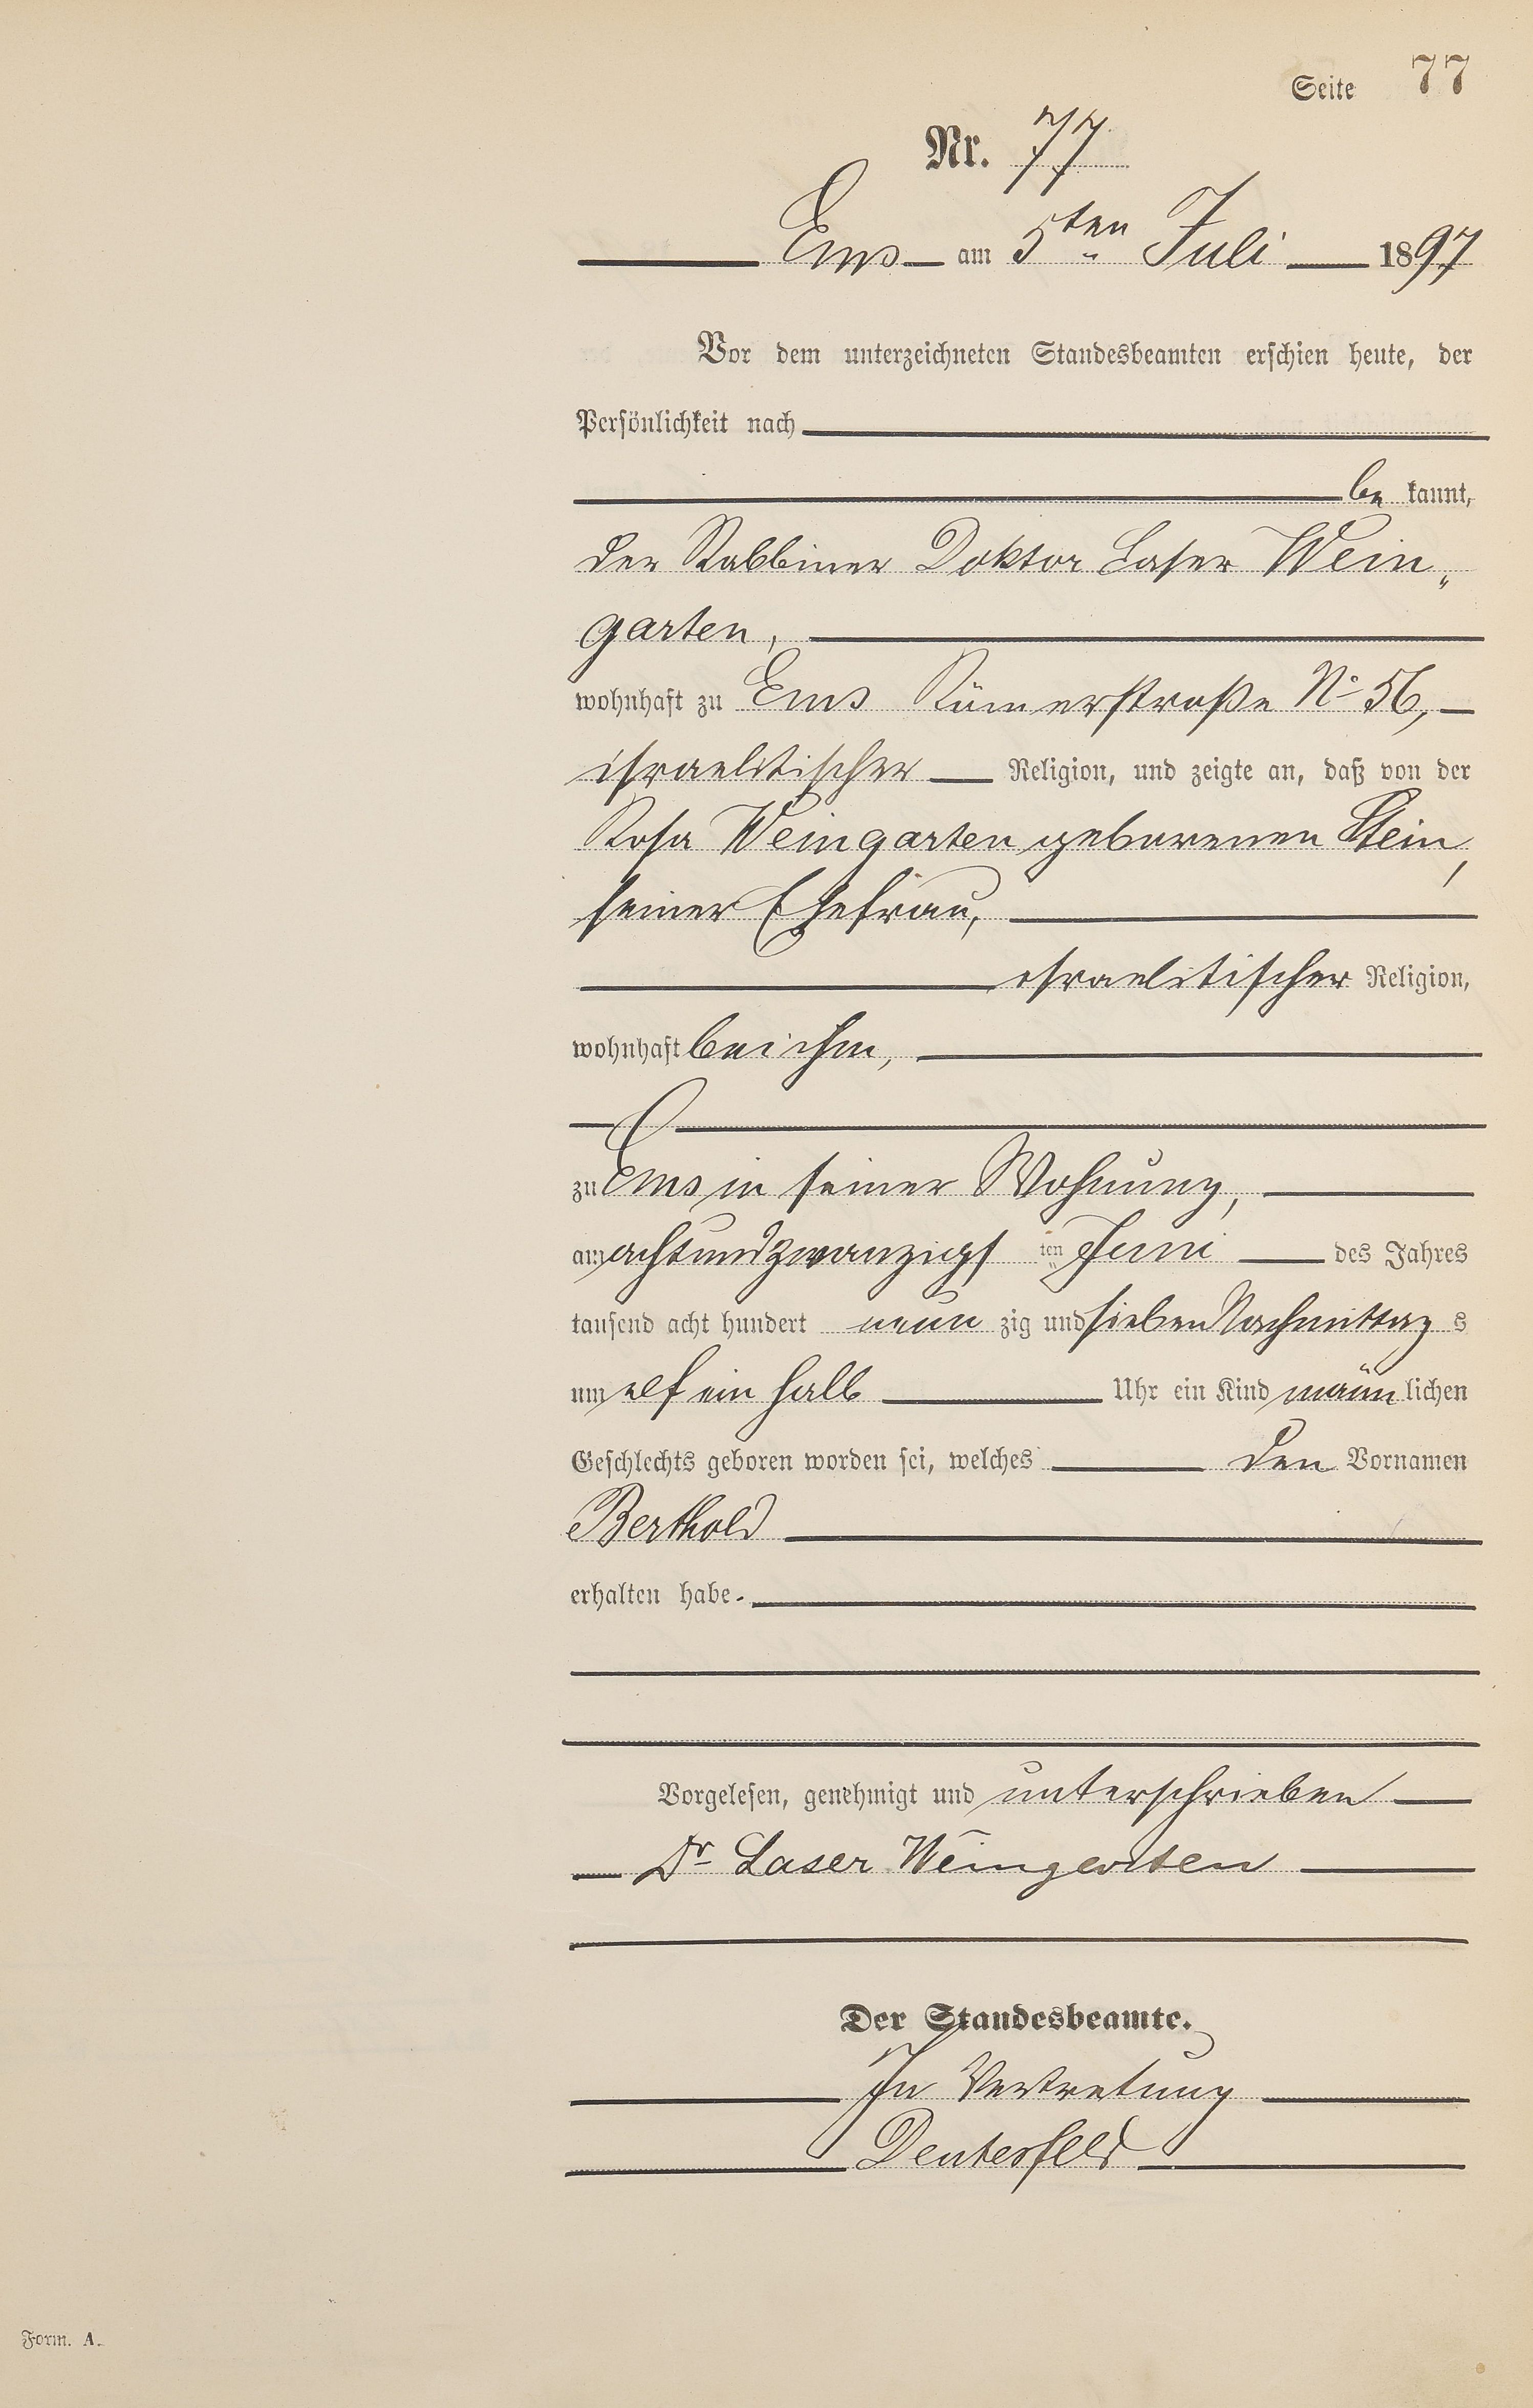 Seite 77
Nr. 77
Ems am 5ten Juli 1897
Vor dem unterzeichneten Standesbeamten erschien heute, der
Persönlichkeit nach
be kannt,
der Rabbiner Doktor Laser Wein„
garten,
wohnhaft zu Ems Römerstraße No 56,
israelitischer Religion, und zeigte an, daß von der
Rosa Weingarten geborenen Stein,
seiner Ehefrau,
israelitischer Religion,
wohnhaft bei ihm,
zu Ems in seiner Wohnung,
am achtundzwanzigs ten Juni des Jahres
tausend acht hundert neun zig und sieben Nachmittag s
um elf ein halb Uhr ein Kind männ lichen
Geschlechts geboren worden sei, welches den Vornamen
Berthold
erhalten habe.
Vorgelesen, genehmigt und unterschrieben
Dr Laser Weingarten
Der Standesbeamte.
In Vertretung
Form. A.